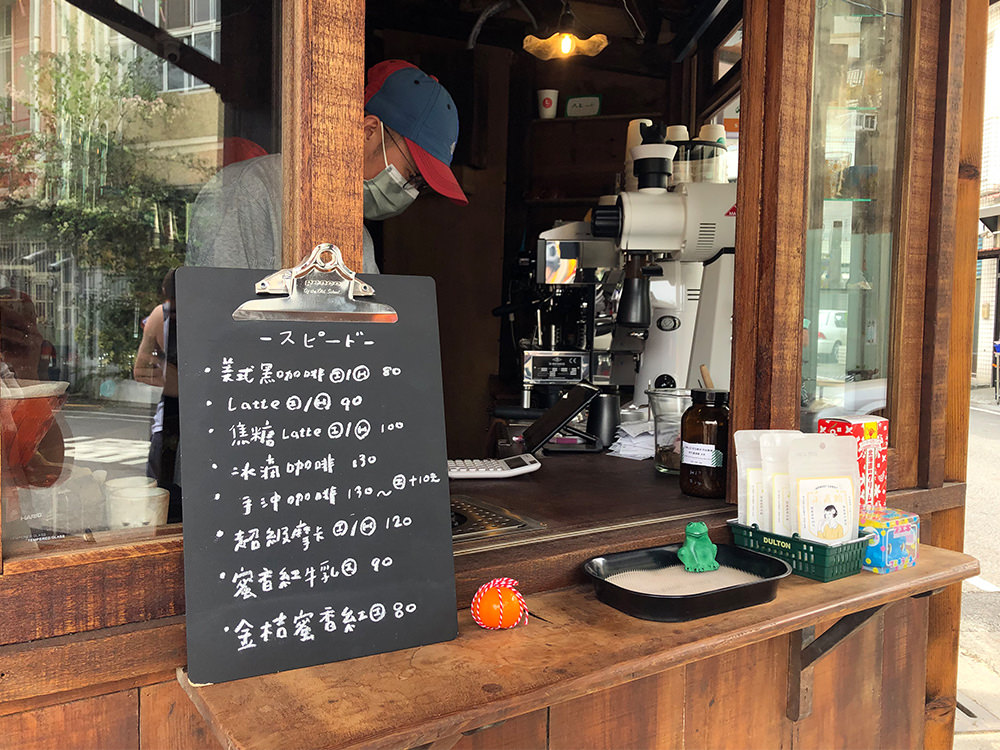 -スピード-
・美式黑咖啡 Ⓘ/Ⓗ 80
・Latte Ⓘ/Ⓗ 90
・焦糖 Latte Ⓘ/Ⓗ 100
・冰滴咖啡 130
・手沖咖啡 130~ Ⓘ+10元
・超級摩卡 Ⓘ/Ⓗ 120
・蜜香紅牛乳 Ⓘ 90
・金桔蜜香紅 Ⓘ 80
DULTON
HARIO
TEMPERED GLASS